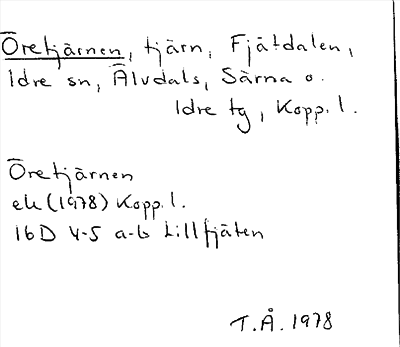 Öretjärnen, tjärn, Fjätdalen,
Idre sn, Älvdals, Särna o.
Idre tg, Kopp. l.
Öretjärnen
ek (1978) Kopp. l.
16D 4-5 a-b Lillfjäten
T.Å. 1978